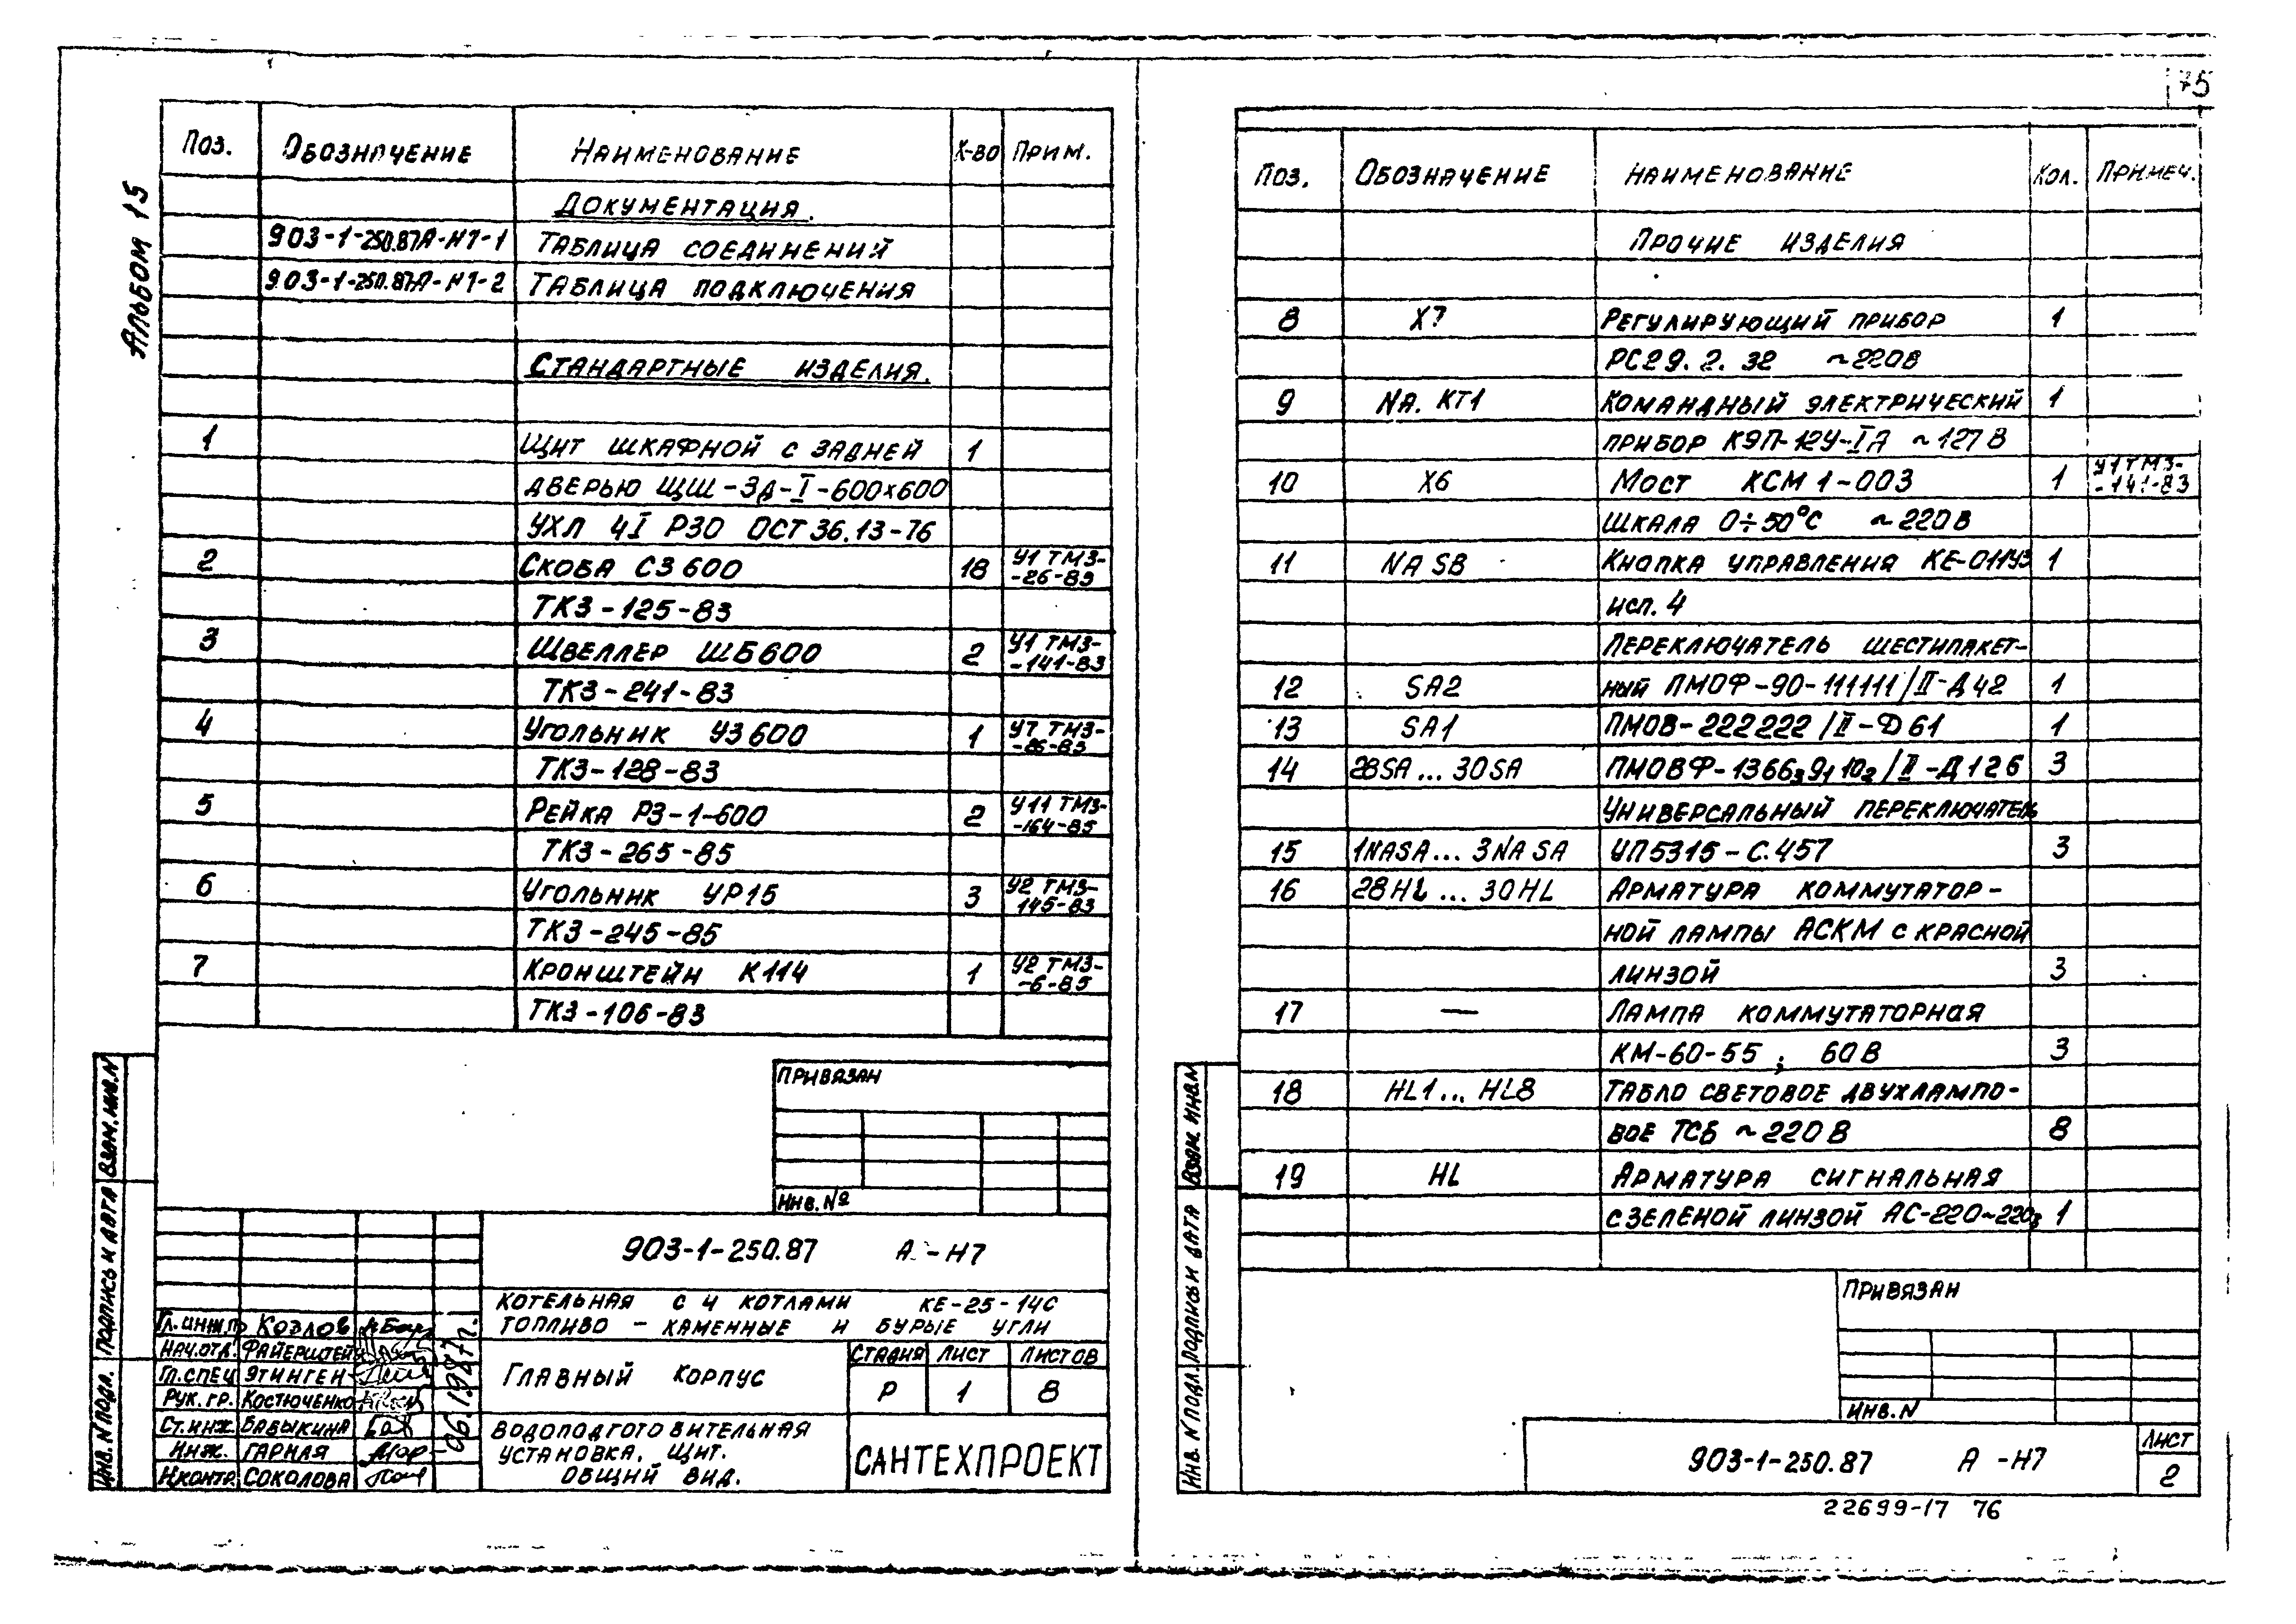 75
Альбом 15
Поз. Обозначение Наименование К-во Прим.
Документация.
903-1-250.87А-Н7-1 Таблица соединений
903-1-250.87А-Н7-2 Таблица подключения
Стандартные изделия.
1 Щит шкафной с задней 1
дверью ЩШ-ЗД-I-600х600
УХЛ 4I Р30 ОСТ 36.13-76
2 Скоба С3600 18 У1 ТМ3-
-26-83
ТК3-125-83
3 Швеллер ШБ600 2 У1 ТМ3-
-141-83
ТК3-241-83
4 Угольник У3600 1 У7 ТМ3-
ТК3-128-83
5 Рейка Р3-1-600 2 У11 ТМ3-
-164-85
ТК3-265-85
6 Угольник УР15 3 У2 ТМ3-
145-83
ТК3-245-85
7 Кронштейн К114 1 У2 ТМ3-
-6-85
ТК3-106-83
Привязан
Инв. №
903-1-250.87 А-Н7
Котельная с 4 котлами КЕ-25-14С
Топливо - каменные и бурые угли
Гл. инж.пр Козлов
Нач.отд. Файерштейн
Гл.спец Этинген
Рук. гр. Костюченко
Ст.инж. Бабыкина
Инж. Гарная
Н.контр. Соколова
06.1987г.
Главный корпус
Стадия Лист Листов
Р 1 8
Водоподготовительная
установка. Щит.
Общий вид.
САНТЕХПРОЕКТ
Инв. N подл. Подпись и дата Взам. инв. N
Поз. Обозначение Наименование Кол. Примеч.
Прочие изделия
8 Х7 Регулирующий прибор 1
РС29.2.32 ~220В
9 NA. KT1 Командный электрический 1
прибор КЭП-12У-IА ~127В
10 Х6 Мост КСМ1-003 1 У1 ТМ3-
-141-83
шкала 0÷50°С ~220В
11 NA SB Кнопка управления КЕ-011У3 1
исп. 4
Переключатель шестипакет-
12 SA2 ный ПМОФ-90-111111/II-Д42 1
13 SA1 ПМОВ-222222/II-Ф61 1
14 28SA...30SA ПМОВФ-1366₃9₁10₂/II-Д126 3
Универсальный переключатель
15 1NASA...3NASA УП5315-С.457 3
16 28HL...30HL Арматура коммутатор-
ной лампы АСКМ с красной
линзой 3
17 — Лампа коммутаторная
КМ-60-55; 60В 3
18 HL1...HL8 Табло световое двухлампо-
вое ТСБ ~220В 8
19 HL Арматура сигнальная
с зеленой линзой АС-220~220в 1
Привязан
Инв. N
903-1-250.87 А-Н7
Лист
2
Инв. N подл. Подпись и дата Взам. инв.N
22699-17 76